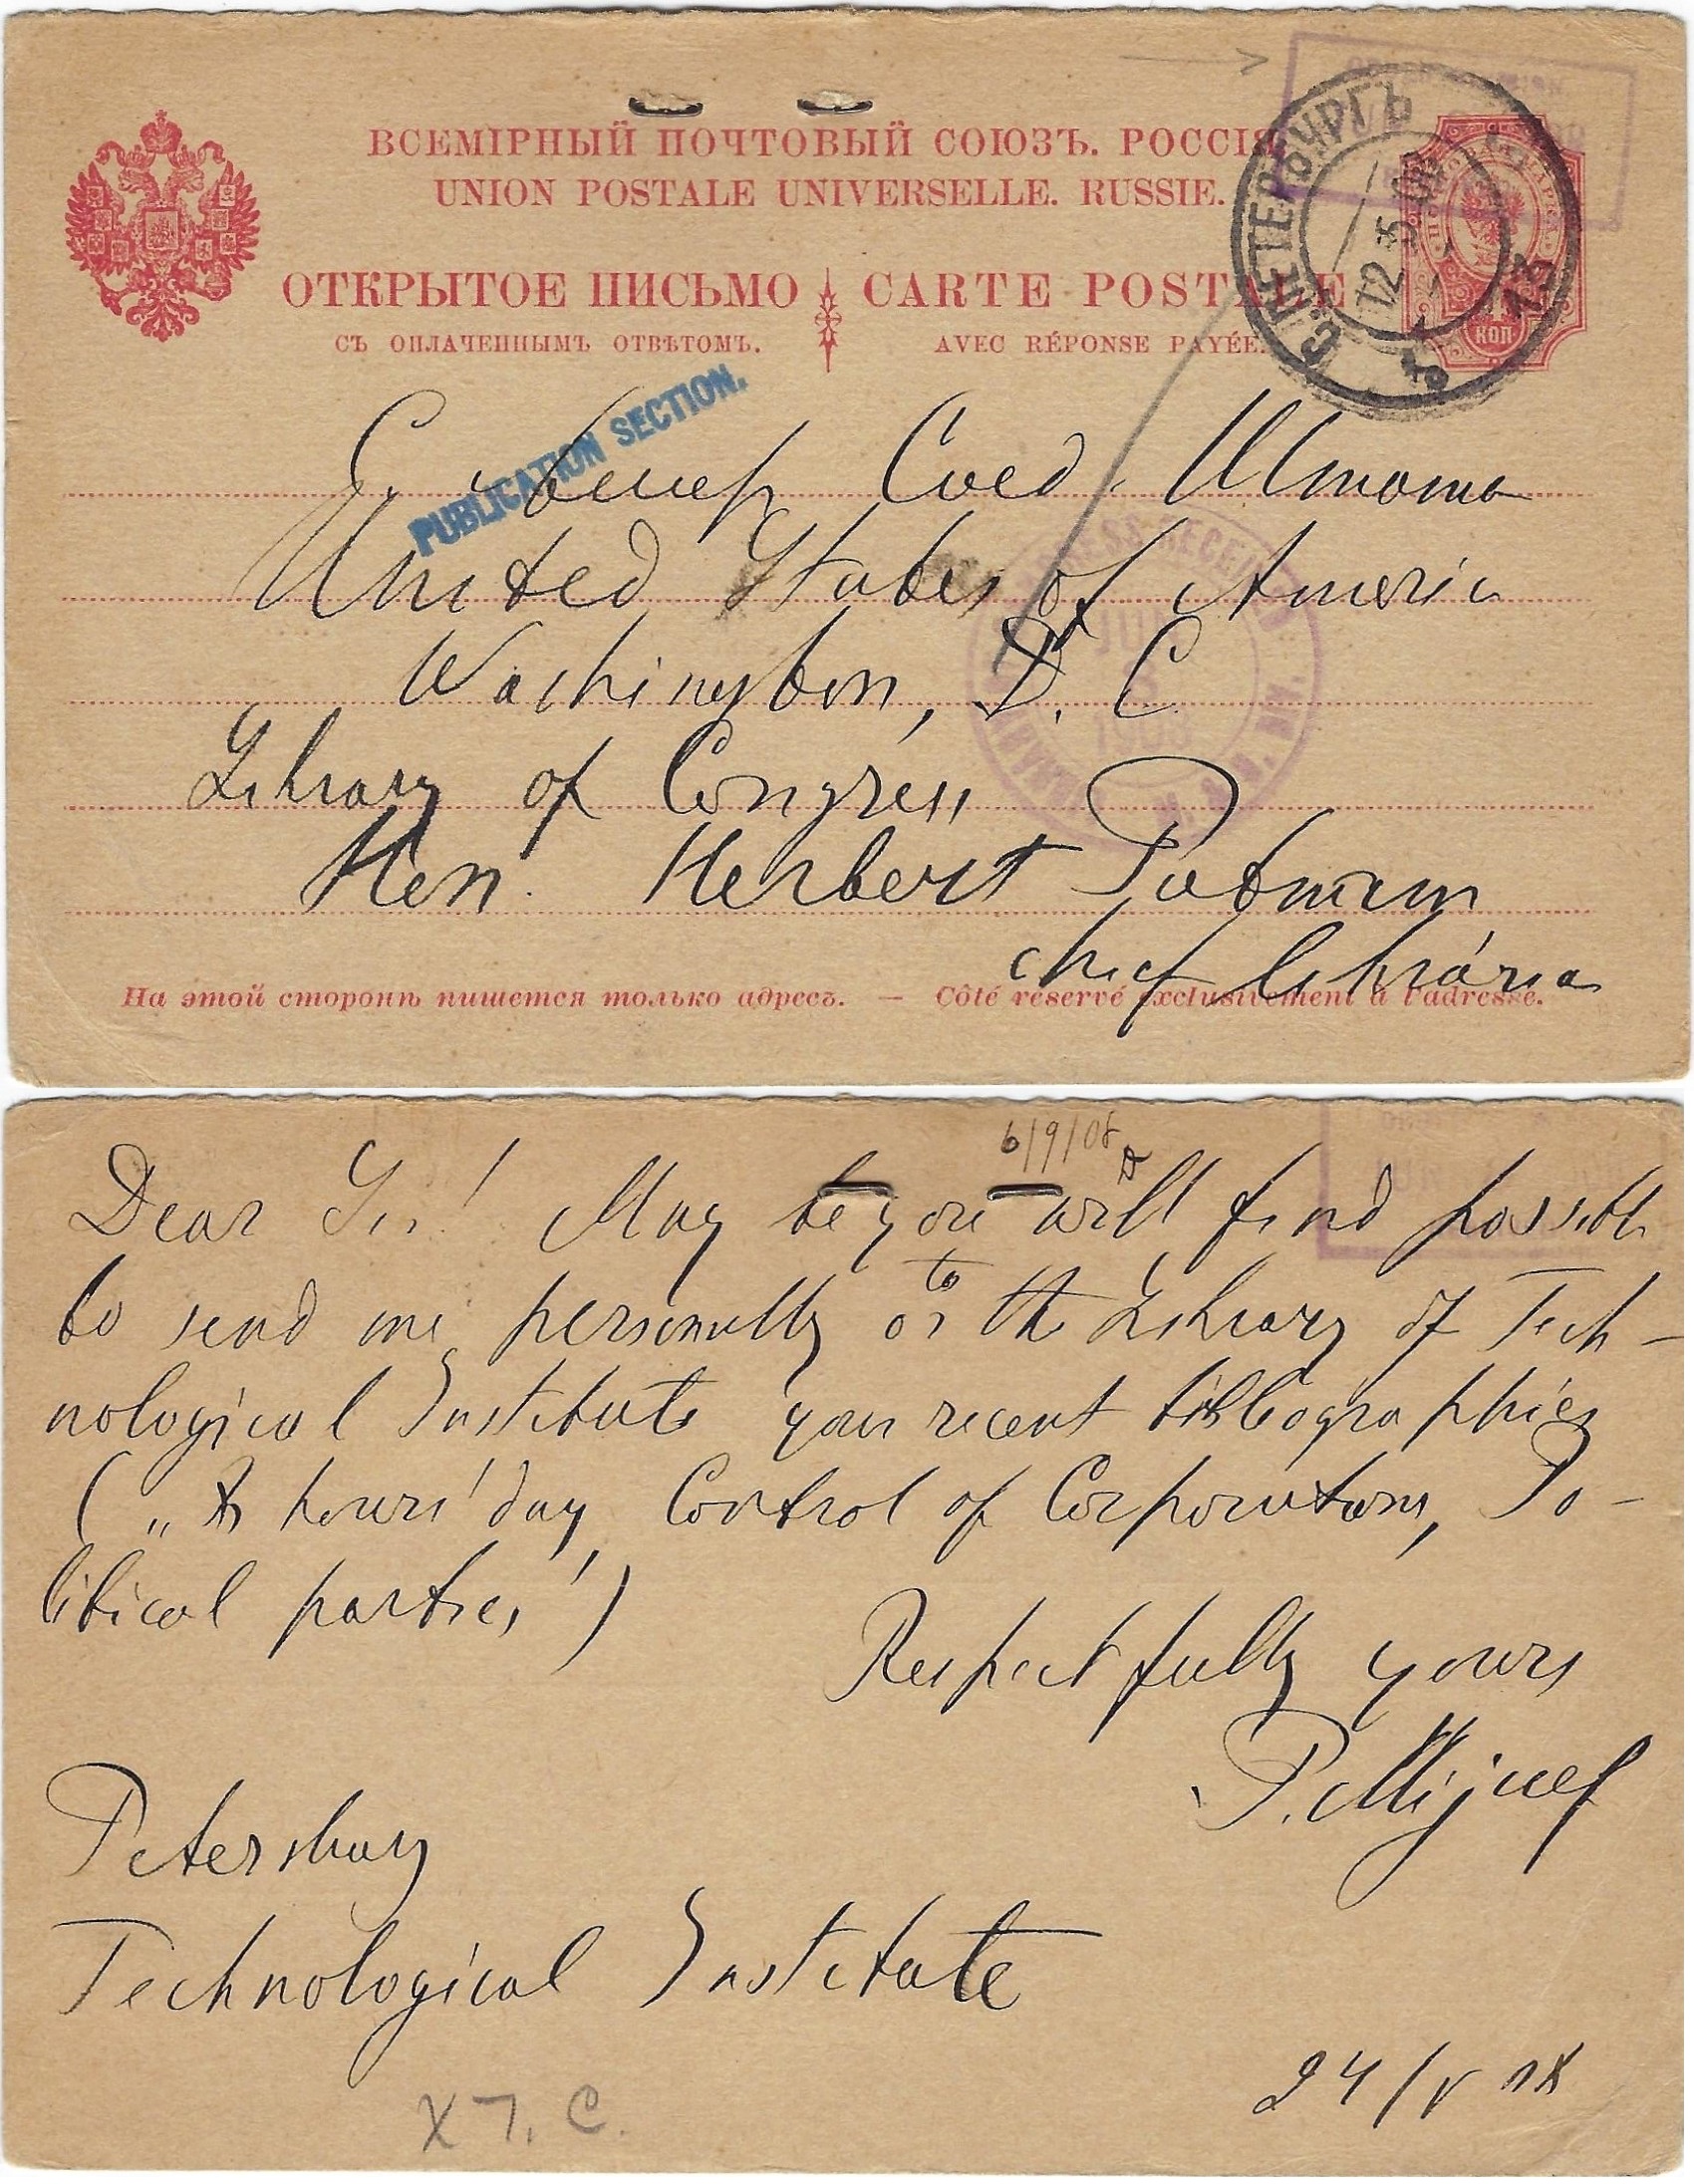 ВСЕМІРНЫЙ ПОЧТОВЫЙ СОЮЗЪ. РОССІЯ
UNION POSTALE UNIVERSELLE. RUSSIE.
ОТКРЫТОЕ ПИСЬМО CARTE POSTALE
СЪ ОПЛАЧЕННЫМЪ ОТВѢТОМЪ. AVEC RÉPONSE PAYÉE.
С. ПЕТЕРБУРГЪ
12 5 08
13
КОП
PUBLICATION SECTION.
С. Амер Соед. Штаты
United States of America
Washington, D. C.
Library of Congress
Hon. Herbert Putnam
chief librarian
На этой сторонѣ пишется только адресъ. — Côté réservé exclusivement à l'adresse.
6/9/08
Dear Sir! May be you will find possible
to send me personally or to the Library of Tech-
nological Institute your recent bibliographies
(„8 hours' day, Control of Corporations, Po-
litical parties")
Respectfully yours
P. Mijuef
Petersburg
Technological Institute
24/V
X 7. C.